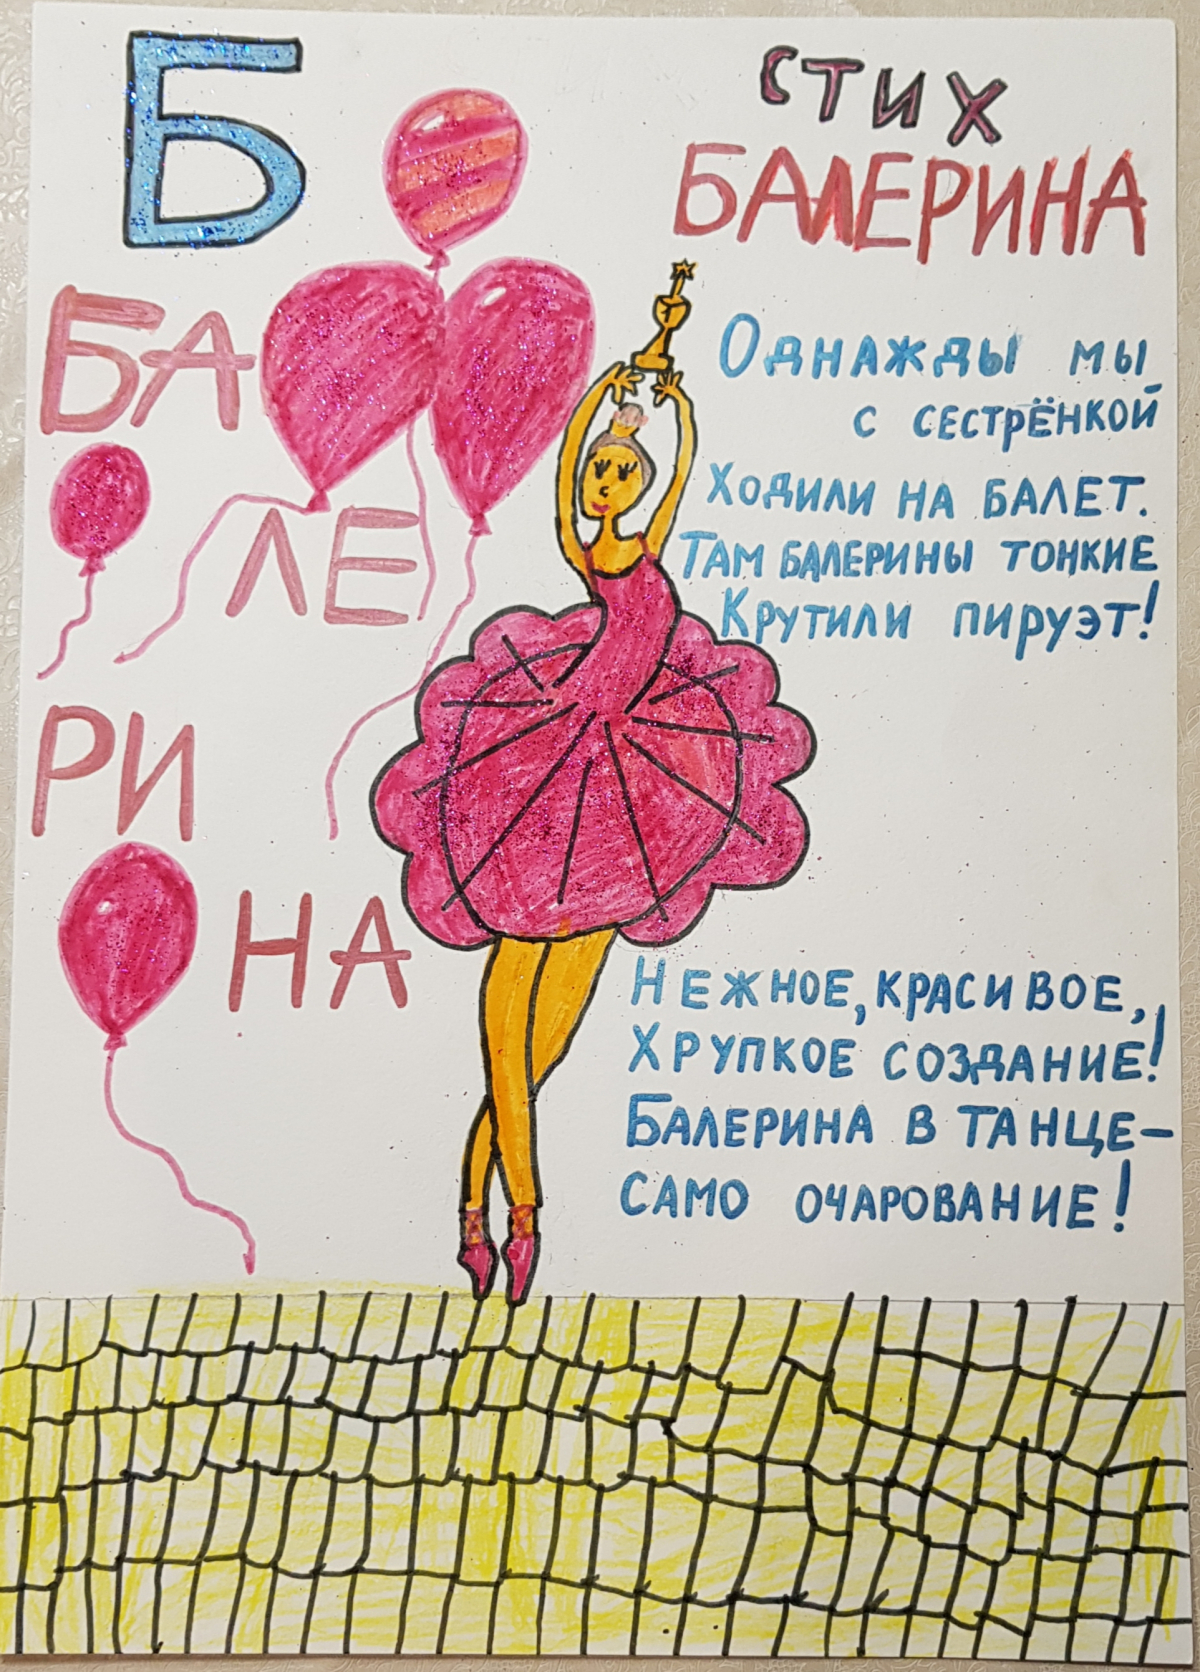 Б
БА
ЛЕ
РИ
НА
СТИХ
БАЛЕРИНА
Однажды мы
с сестрёнкой
Ходили на балет.
Там балерины тонкие
Крутили пируэт!
Нежное, красивое,
Хрупкое создание!
Балерина в танце –
само очарование!